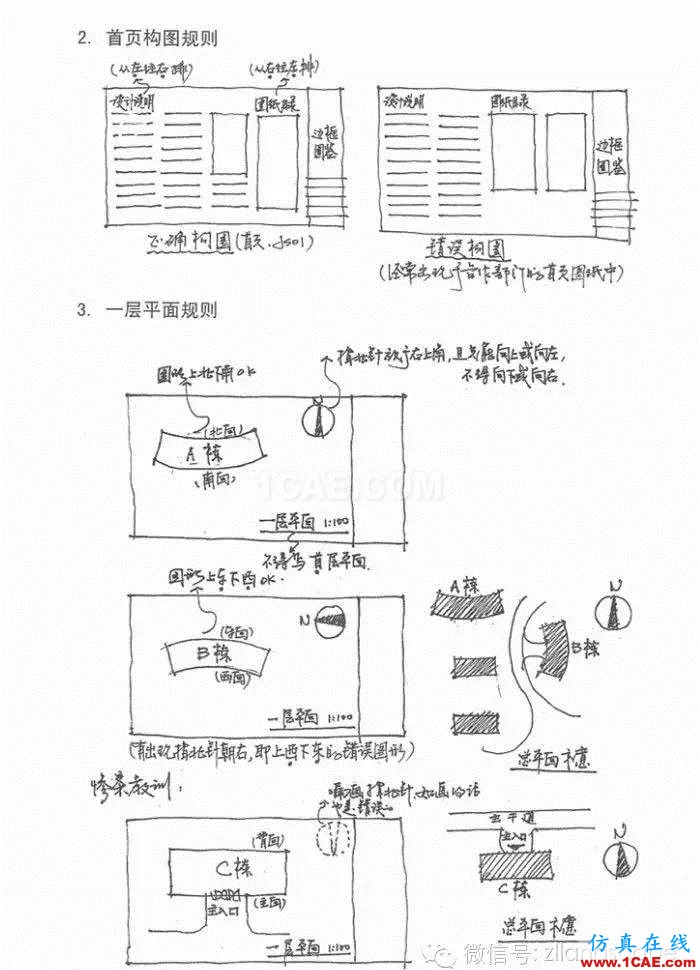 2. 首页构图规则
(从左往右排)
(从右往左排)
设计说明
图纸目录
边框
图签
设计说明
图纸目录
边框
图签
正确构图(首页.JS01)
错误构图
(经常出现于合作部门的首页图纸中)
3. 一层平面规则
指北针放于右上角,且只能向上或向左,
不得向下或向右.
图形上北下南OK
N
(北面)
A栋
(南面)
一层平面 1:100
不得写首层平面.
图形上东下西OK.
N
(东面)
B栋
(西面)
一层平面 1:100
A栋
B栋
N
总平面示意
(有出现指北针朝右,即上西下东的错误图形)
惨案教训:
漏画指北针,如画的话
也是错误。
(背面)
C栋
主入口
(主面)
一层平面 1:100
主干道
主入口
C栋
N
总平面示意
1CAE.COM
仿真在线
www.1CAE.com